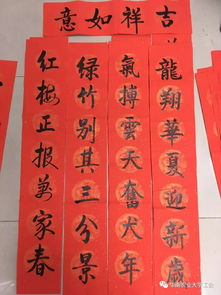 吉祥如意
龍翔華夏迎新歲
氣搏雲天奮犬年
綠竹别其三分景
紅梅正报萬家春
华南农业大学工会